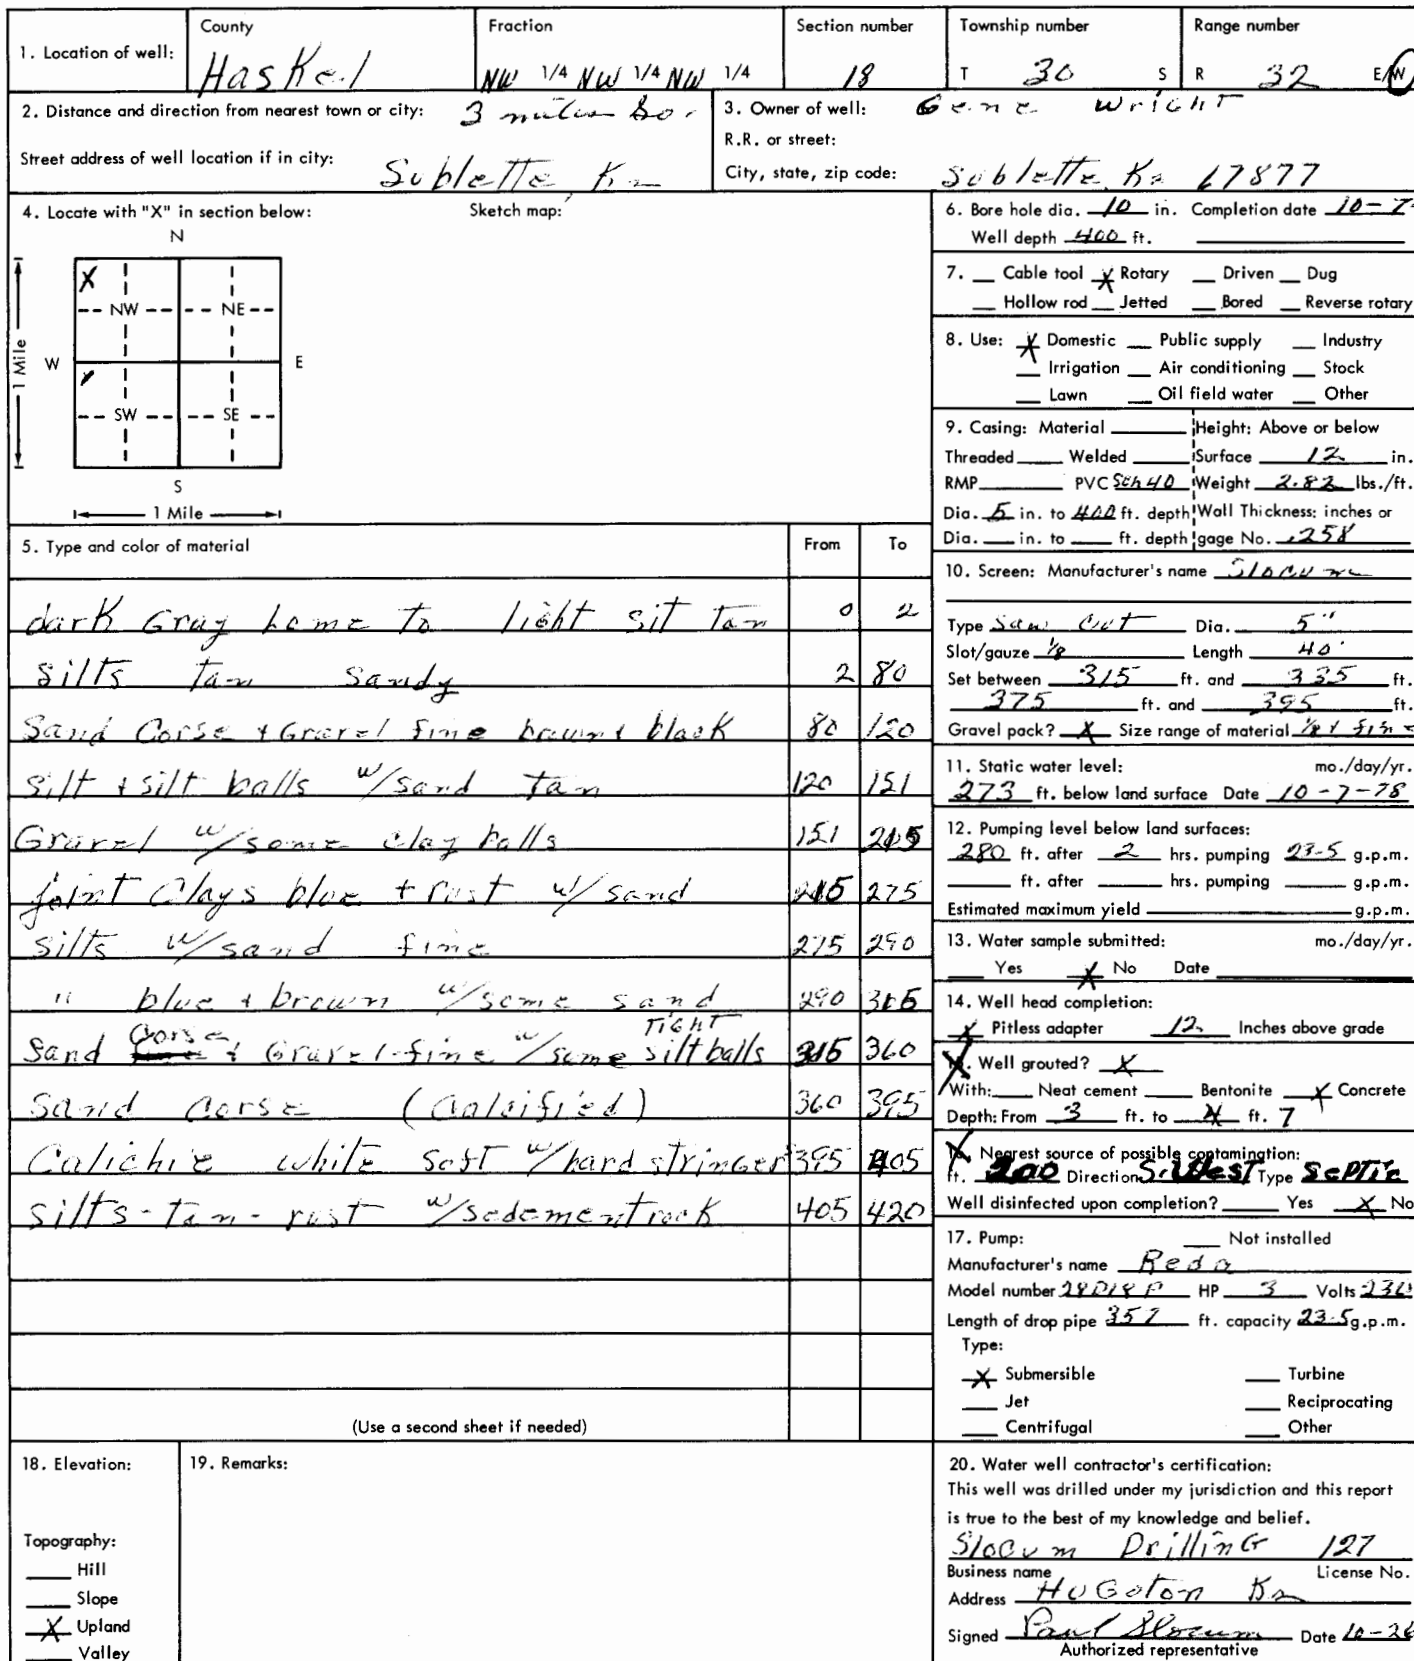 1. Location of well: County Haskel Fraction NW 1/4 NW 1/4 NW 1/4 Section number 18 Township number T 30 S Range number R 32 E/W
2. Distance and direction from nearest town or city: 3 miles So.
Street address of well location if in city: Sublette Ks
3. Owner of well: Gene Wright
R.R. or street:
City, state, zip code: Sublette Ks 67877
4. Locate with "X" in section below: Sketch map:
N
X
NW NE
W E
1 Mile
SW SE
S
1 Mile
5. Type and color of material From To
dark Gray lome to light sit tan 0 2
silts tan sandy 2 80
Sand Corse + Gravel fine brown + black 80 120
Silt + silt balls w/sand tan 120 151
Gravel w/some clay balls 151 215
joint Clays blue + rust w/sand 215 275
silts w/sand fine 275 290
" blue + brown w/some sand 290 315
Sand Corse + Gravel-fine w/some TIGHT silt balls 315 360
Sand Corse (Calcified) 360 395
Calichie white soft w/hard stringer 395 405
silts-tan-rust w/sedement rock 405 420
(Use a second sheet if needed)
6. Bore hole dia. 10 in. Completion date 10-7-
Well depth 400 ft.
7. Cable tool X Rotary Driven Dug
Hollow rod Jetted Bored Reverse rotary
8. Use: X Domestic Public supply Industry
Irrigation Air conditioning Stock
Lawn Oil field water Other
9. Casing: Material Height: Above or below
Threaded Welded Surface 12 in.
RMP PVC Sch 40 Weight 2.82 lbs./ft.
Dia. 5 in. to 400 ft. depth Wall Thickness: inches or
Dia. in. to ft. depth gage No. .258
10. Screen: Manufacturer's name Slocum
Type Saw Cut Dia. 5"
Slot/gauze 1/8 Length 40'
Set between 315 ft. and 335 ft.
375 ft. and 395 ft.
Gravel pack? X Size range of material 1/8 + fine
11. Static water level: mo./day/yr.
273 ft. below land surface Date 10-7-78
12. Pumping level below land surfaces:
280 ft. after 2 hrs. pumping 23.5 g.p.m.
ft. after hrs. pumping g.p.m.
Estimated maximum yield g.p.m.
13. Water sample submitted: mo./day/yr.
Yes X No Date
14. Well head completion:
X Pitless adapter 12 Inches above grade
Well grouted? X
With: Neat cement Bentonite X Concrete
Depth: From 3 ft. to ft. 7
Nearest source of possible contamination:
ft. 200 Direction S.West Type Septic
Well disinfected upon completion? Yes X No
17. Pump: Not installed
Manufacturer's name Reda
Model number HP 3 Volts 230
Length of drop pipe 357 ft. capacity 23.5 g.p.m.
Type:
X Submersible Turbine
Jet Reciprocating
Centrifugal Other
18. Elevation:
Topography:
Hill
Slope
X Upland
Valley
19. Remarks:
20. Water well contractor's certification:
This well was drilled under my jurisdiction and this report
is true to the best of my knowledge and belief.
Slocum Drilling 127
Business name License No.
Address Hugoton Ks
Signed Paul Slocum Date 10-26
Authorized representative